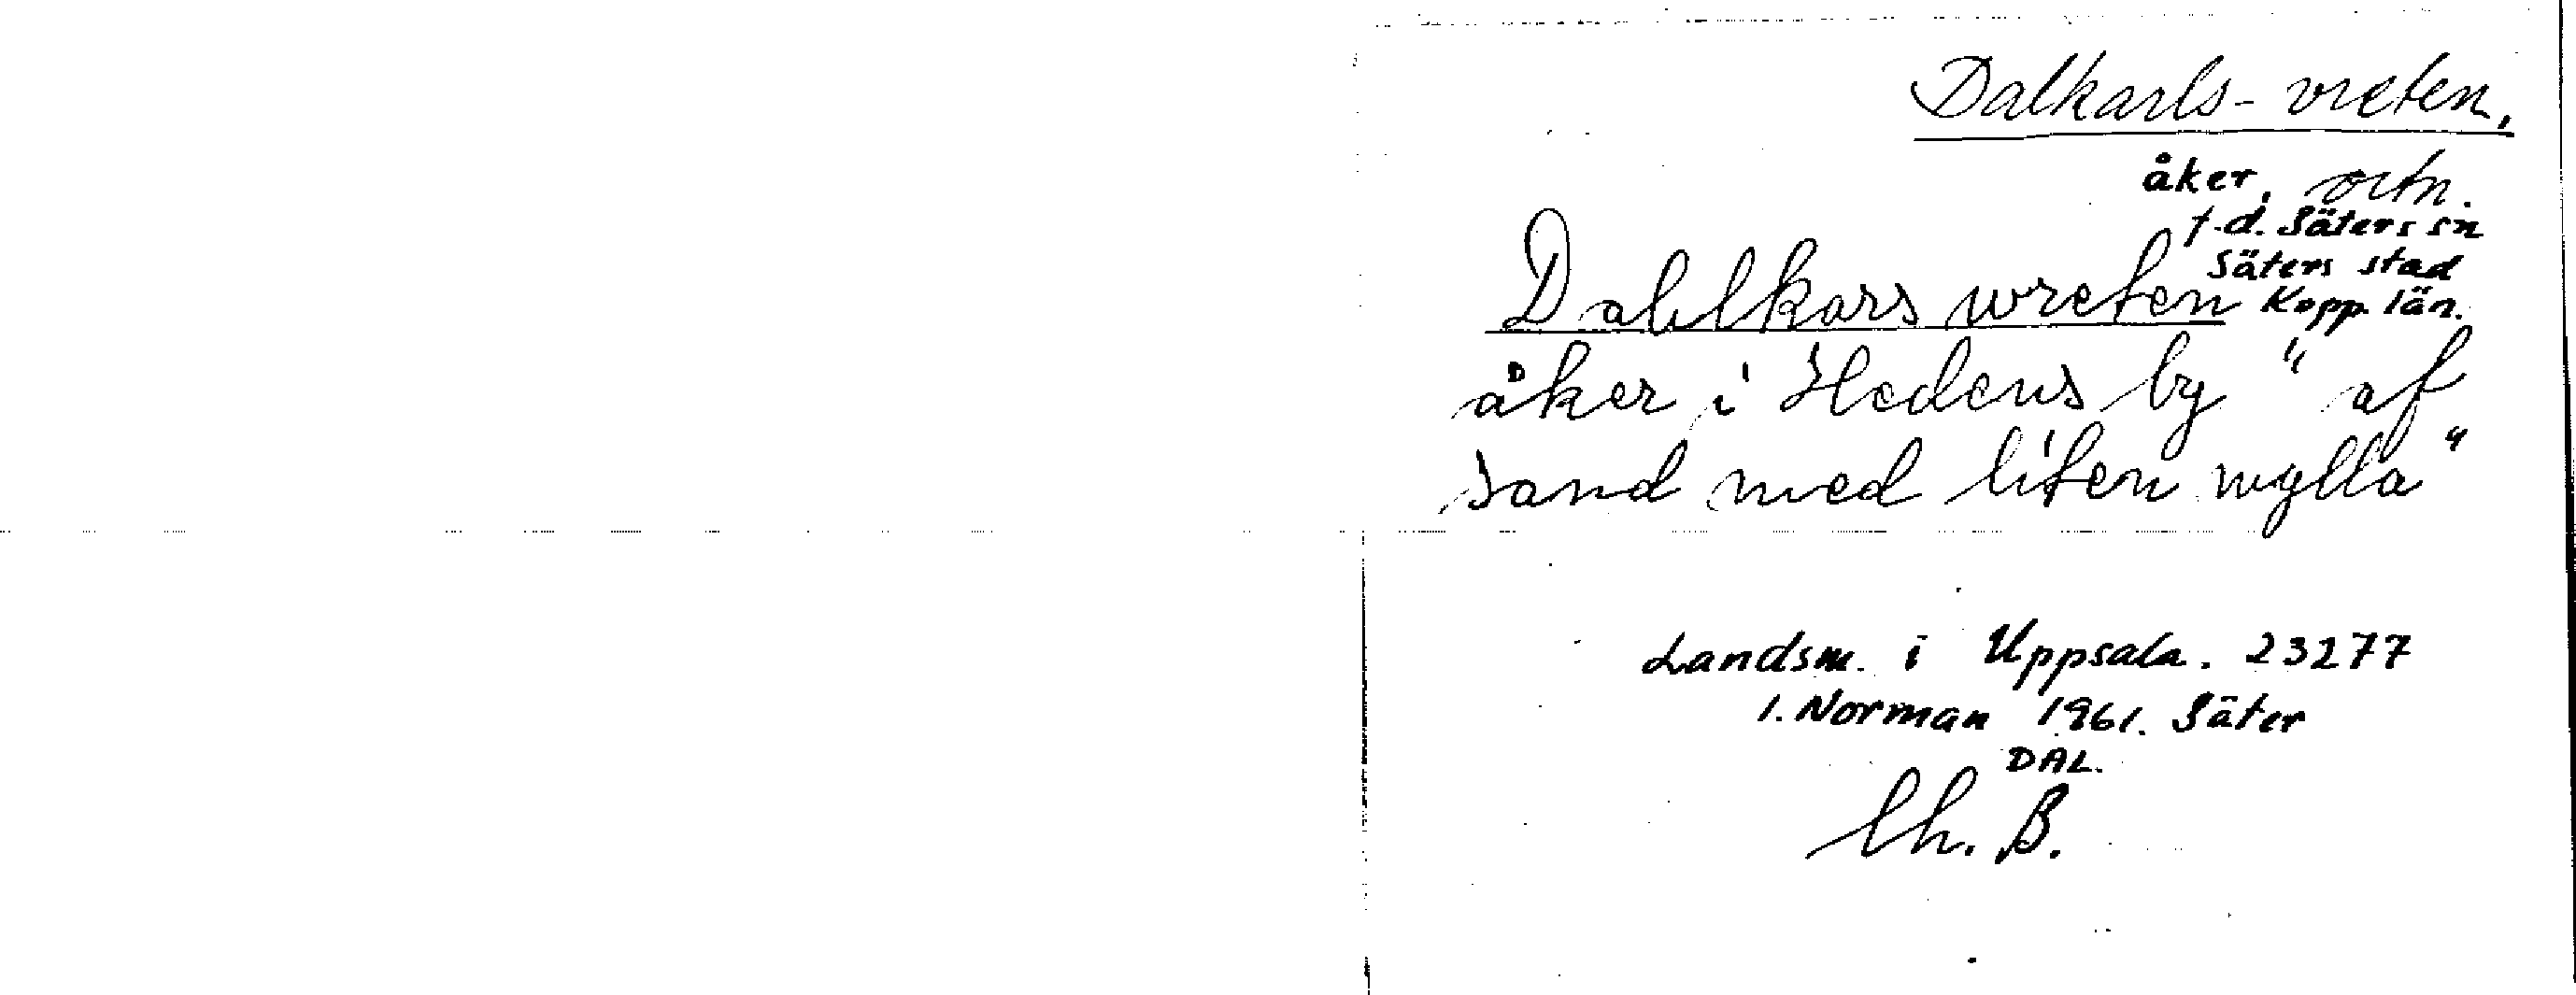 Dalkarls-vreten,
åker, ortn.
f.d. Säters sn
Säters stad
Kopp. län.
Dahlkars wreten
åker i Hedens by "af
sand med liten mylla"
Landsm. i Uppsala. 23277
I. Norman 1961. Säter
DAL.
Ch. B.